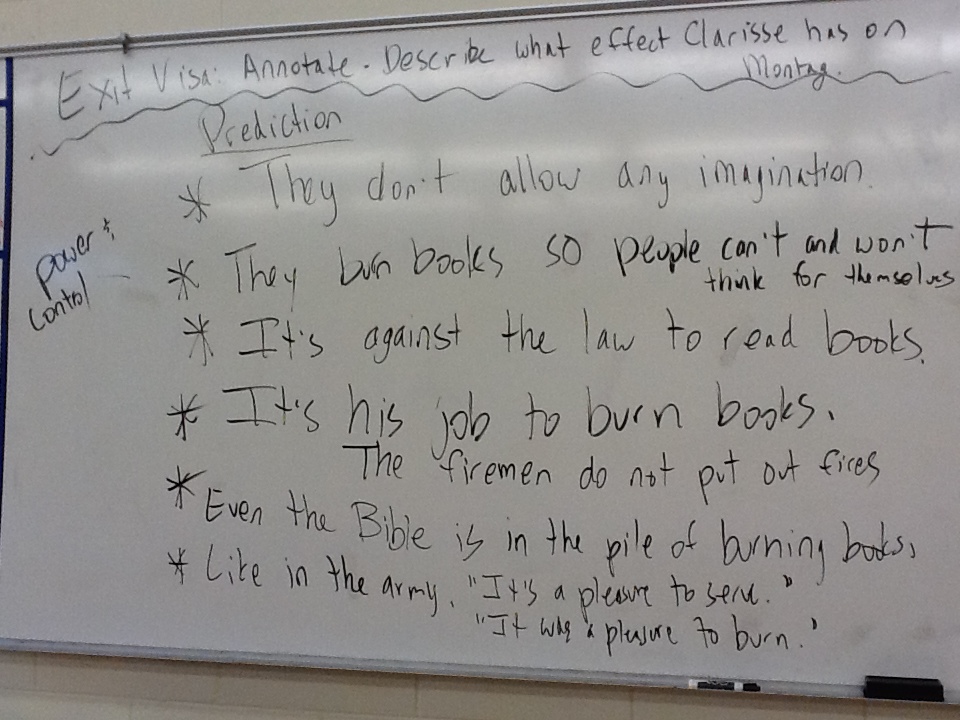 Exit Visa: Annotate. Describe what effect Clarisse has on
Montag.
Prediction
* They don't allow any imagination.
power &
control
* They burn books so people can't and won't
think for themselves
* It's against the law to read books.
* It's his job to burn books.
The firemen do not put out fires
* Even the Bible is in the pile of burning books.
* Like in the army. "It's a pleasure to serve."
"It was a pleasure to burn."